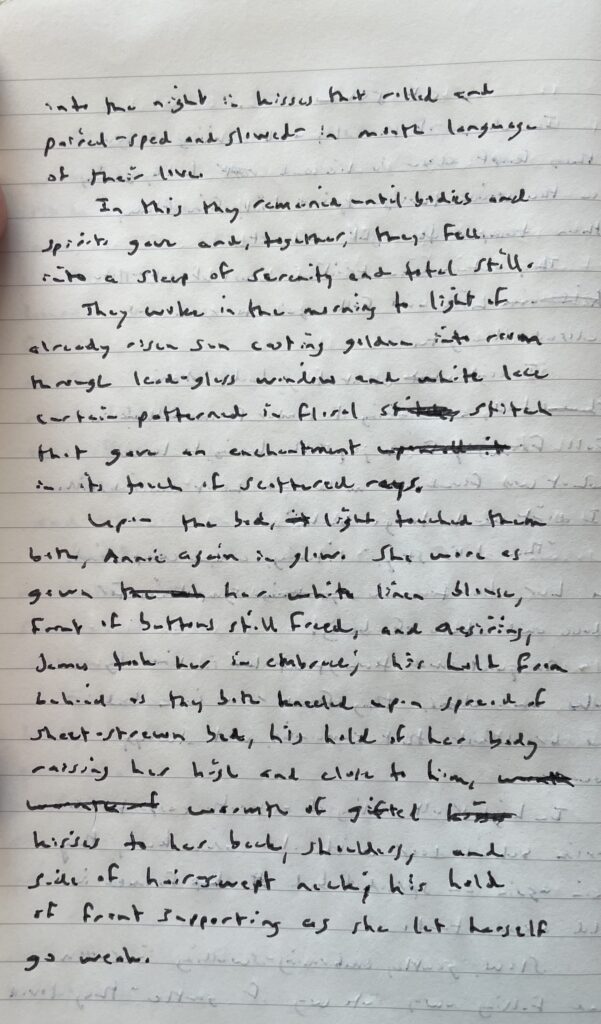 into the night in kisses that rolled and
paired-sped and slowed-in mouth language
of their love.
In this they remained until bodies and
spirits gave and, together, they fell
into a sleep of serenity and total still.
They woke in the morning to light of
already risen sun casting golden into room
through lead-glass window and white lace
curtain patterned in floral stitch
that gave an enchantment
in its touch of scattered rays.
Upon the bed, light touched them
both, Annie again in glow. She wore as
gown her white linen blouse,
front of buttons still freed, and desiring,
James took her in embrace; his hold from
behind as they both kneeled upon spread of
sheet-strewn bed, his hold of her body
raising her high and close to him,
warmth of gifted
kisses to her back, shoulders, and
side of hair-swept neck; his hold
of front supporting as she let herself
go weak.